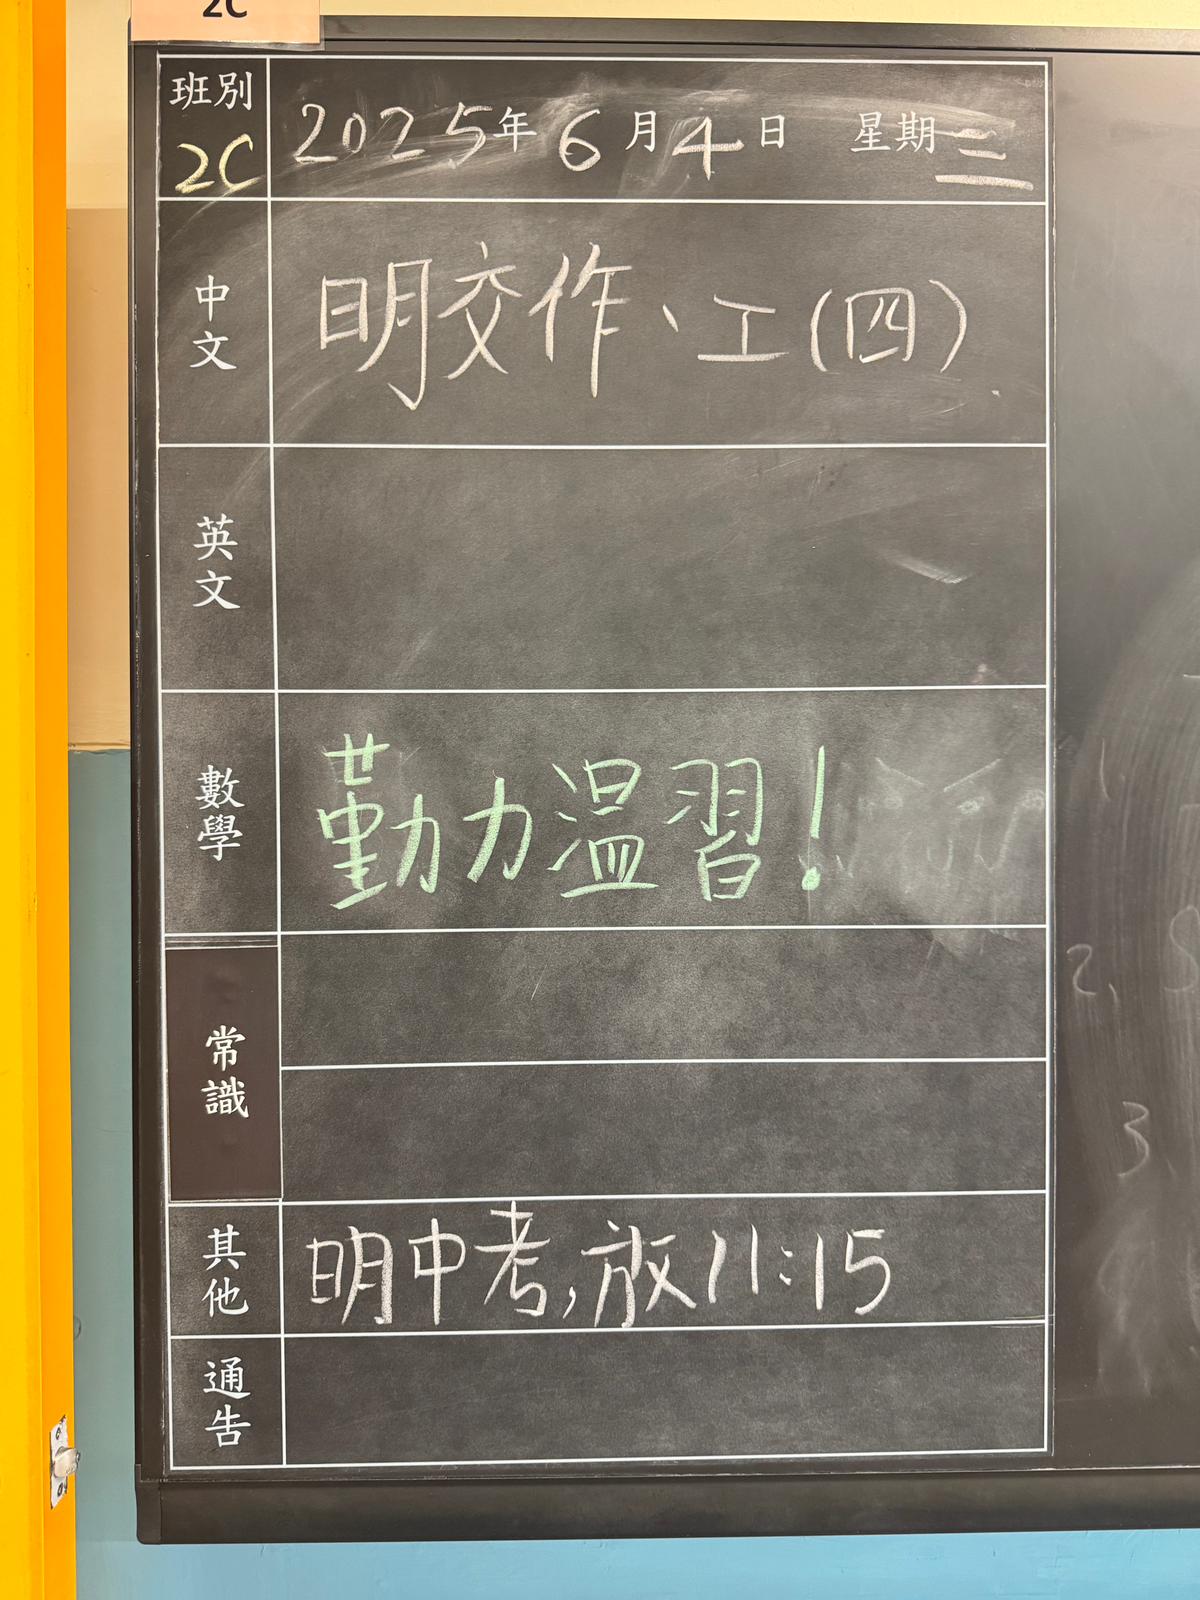 2C
班別 2025年6月4日 星期三
2C
中文 明交作、工(四)
英文
數學 勤力温習!
常識
其他 明中考,放11:15
通告
2,
3